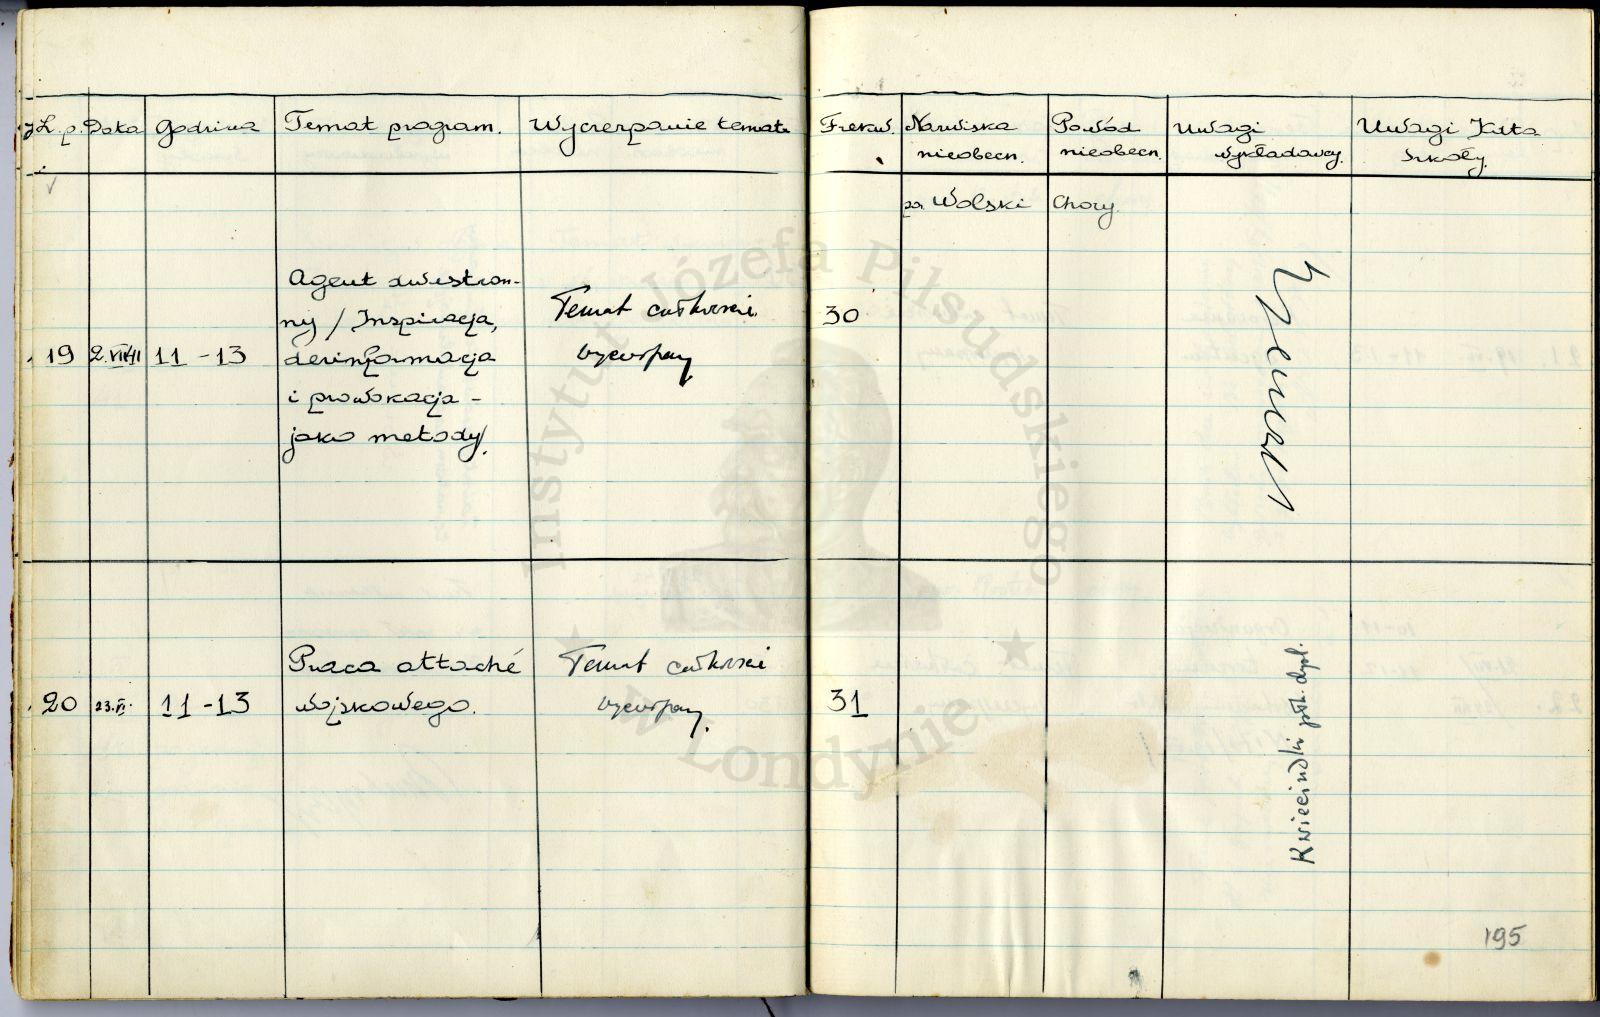 L. p. Data Godzina Temat program. Wyczerpanie temat. Frekw. Nazwiska nieobecn. Powód nieobecn. Uwagi wykładowcy. Uwagi Kdta Szkoły.
por. Wolski Chory.
19 11-13
Agent dwustron-
ny / Inspiracja,
dezinformacja
i prowokacja -
jako metody/.
Temat całkowicie
wyczerpany
30
20 23.VI. 11-13
Praca attaché
wojskowego.
Temat całkowicie
wyczerpany.
31
Kwieciński płk. dypl.
195
Instytut Józefa Piłsudskiego
w Londynie